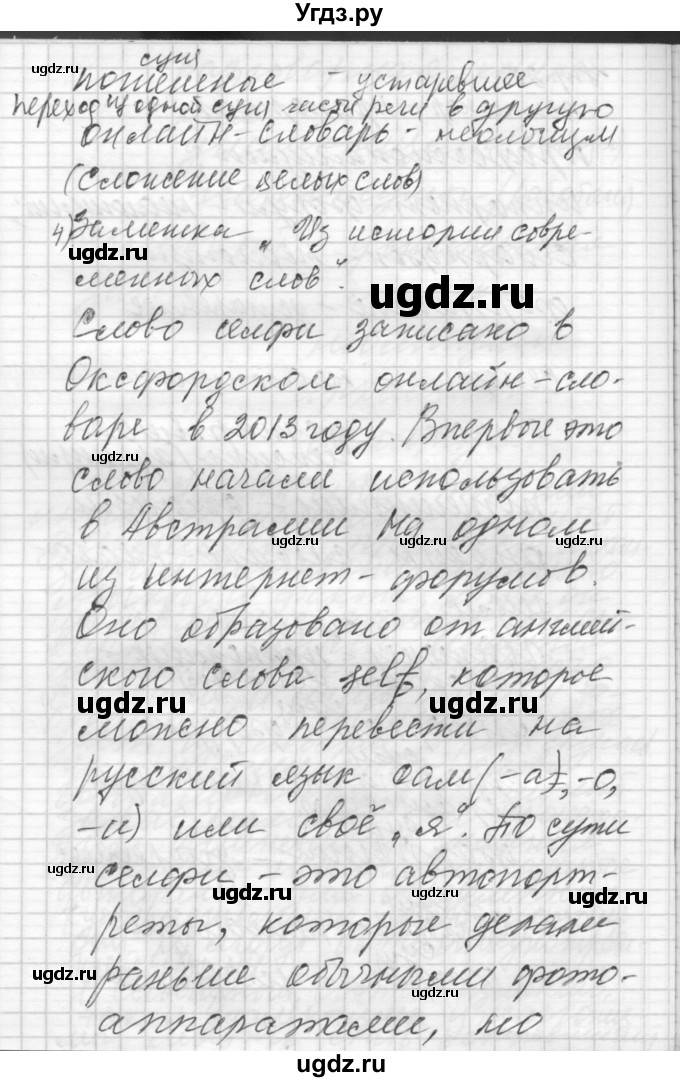 Угдз.ру
сущ
пожешные - устаревшее
переход из одной сущ части речи в другую
онлайн-словарь - неологизм
(сложение целых слов)
4) Заметка „Из истории совре-
менных слов".
Слово селфи записано в
Оксфордском онлайн-сло-
варе в 2013 году. Впервые это
слово начали использовать
в Австралии на одном
из интернет-форумов.
Оно образовано от англий-
ского слова self, которое
можно перевести на
русский язык сам (-а), -о,
-и) или своё „я". По сути
селфи - это автопорт-
реты, которые делали
раньше обычными фото-
аппаратами, но
ugdz.ru